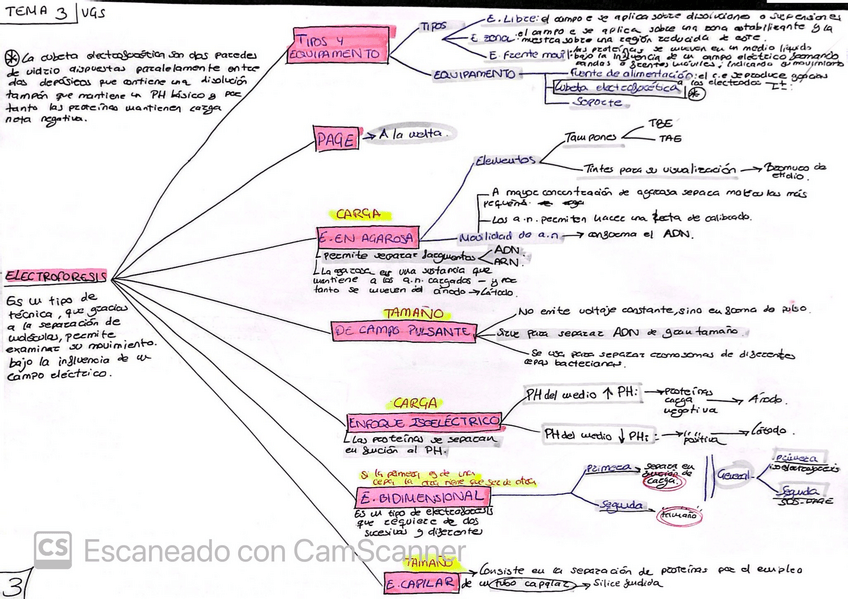 TEMA 3 | VGS
⊛ La cubeta electroforética son dos paredes
de vidrio dispuestas paralelamente entre
dos depósitos que contiene una disolución
tampón que mantiene un PH básico y por
tanto las proteínas mantienen carga
neta negativa.
ELECTROFORESIS
Es un tipo de
técnica, que gracias
a la separación de
moléculas, permite
examinar su movimiento
bajo la influencia de un
campo eléctrico.
TIPOS Y
EQUIPAMIENTO
TIPOS
E. Libre: el campo e se aplica sobre disoluciones o suspensiones
E zona: el campo e. se aplica sobre una zona estabilizante y la
muestra sobre una región reducida de este.
E. Frente móvil: las proteínas se mueven en un medio líquido
bajo la influencia de un campo eléctrico formando
bandas o frentes móviles, indicando su movimiento
EQUIPAMIENTO
Fuente de alimentación: el c.e se produce gracias
a los electrodos
Cubeta electroforética
⊛
Soporte
PAGE → A la vuelta.
CARGA
E. EN AGAROSA
Permite separar fragmentos
ADN.
ARN.
La agarosa es una sustancia que
mantiene a los a.n cargados - y por
tanto se mueven del ánodo → Cátodo.
Elementos
Tampones
TBE
TAE
Tintes para su visualización → Bromuro de
etidio.
A mayor concentración de agarosa separa moléculas más
pequeñas.
Los a.n. permiten hacer una recta de calibrado.
Movilidad de a.n → conforma el ADN.
TAMAÑO
DE CAMPO PULSANTE
No emite voltaje constante, sino en forma de pulso.
Sirve para separar ADN de gran tamaño.
Se usa para separar cromosomas de diferentes
cepas bacterianas.
CARGA
ENFOQUE ISOELÉCTRICO
Las proteínas se separan
en función al PH.
PH del medio ↑ PH: → Proteínas
carga
negativa → Ánodo.
PH del medio ↓ PH: → " positiva → Cátodo.
Si la primera es de una
cepa la otra tiene que ser de otra
E. BIDIMENSIONAL
Es un tipo de electroforesis
que requiere de dos
sucesivas y diferentes
Primera → separa en
función de
carga.
Segunda → "tamaño"
General
Primera
isoelectroforesis
Segunda
SDS-PAGE
TAMAÑO
E. CAPILAR
Consiste en la separación de proteínas por el empleo
de un tubo capilar → Sílice fundida
3
CS Escaneado con CamScanner